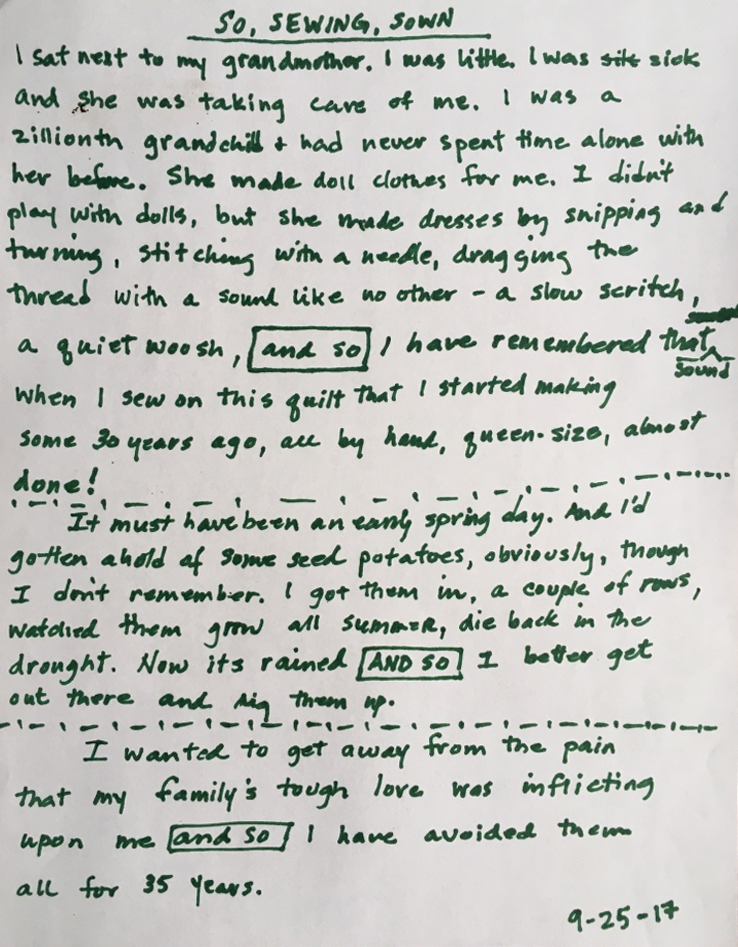 SO, SEWING, SOWN
I sat next to my grandmother. I was little. I was sick
and she was taking care of me. I was a
zillionth grandchild + had never spent time alone with
her before. She made doll clothes for me. I didn't
play with dolls, but she made dresses by snipping and
turning, stitching with a needle, dragging the
thread with a sound like no other - a slow scritch,
a quiet woosh, and so I have remembered that
sound
when I sew on this quilt that I started making
some 30 years ago, all by hand, queen-size, almost
done!
It must have been an early spring day. And I'd
gotten ahold of some seed potatoes, obviously, though
I don't remember. I got them in, a couple of rows,
watched them grow all summer, die back in the
drought. Now its rained AND SO I better get
out there and dig them up.
I wanted to get away from the pain
that my family's tough love was inflicting
upon me and so I have avoided them
all for 35 years.
9-25-17